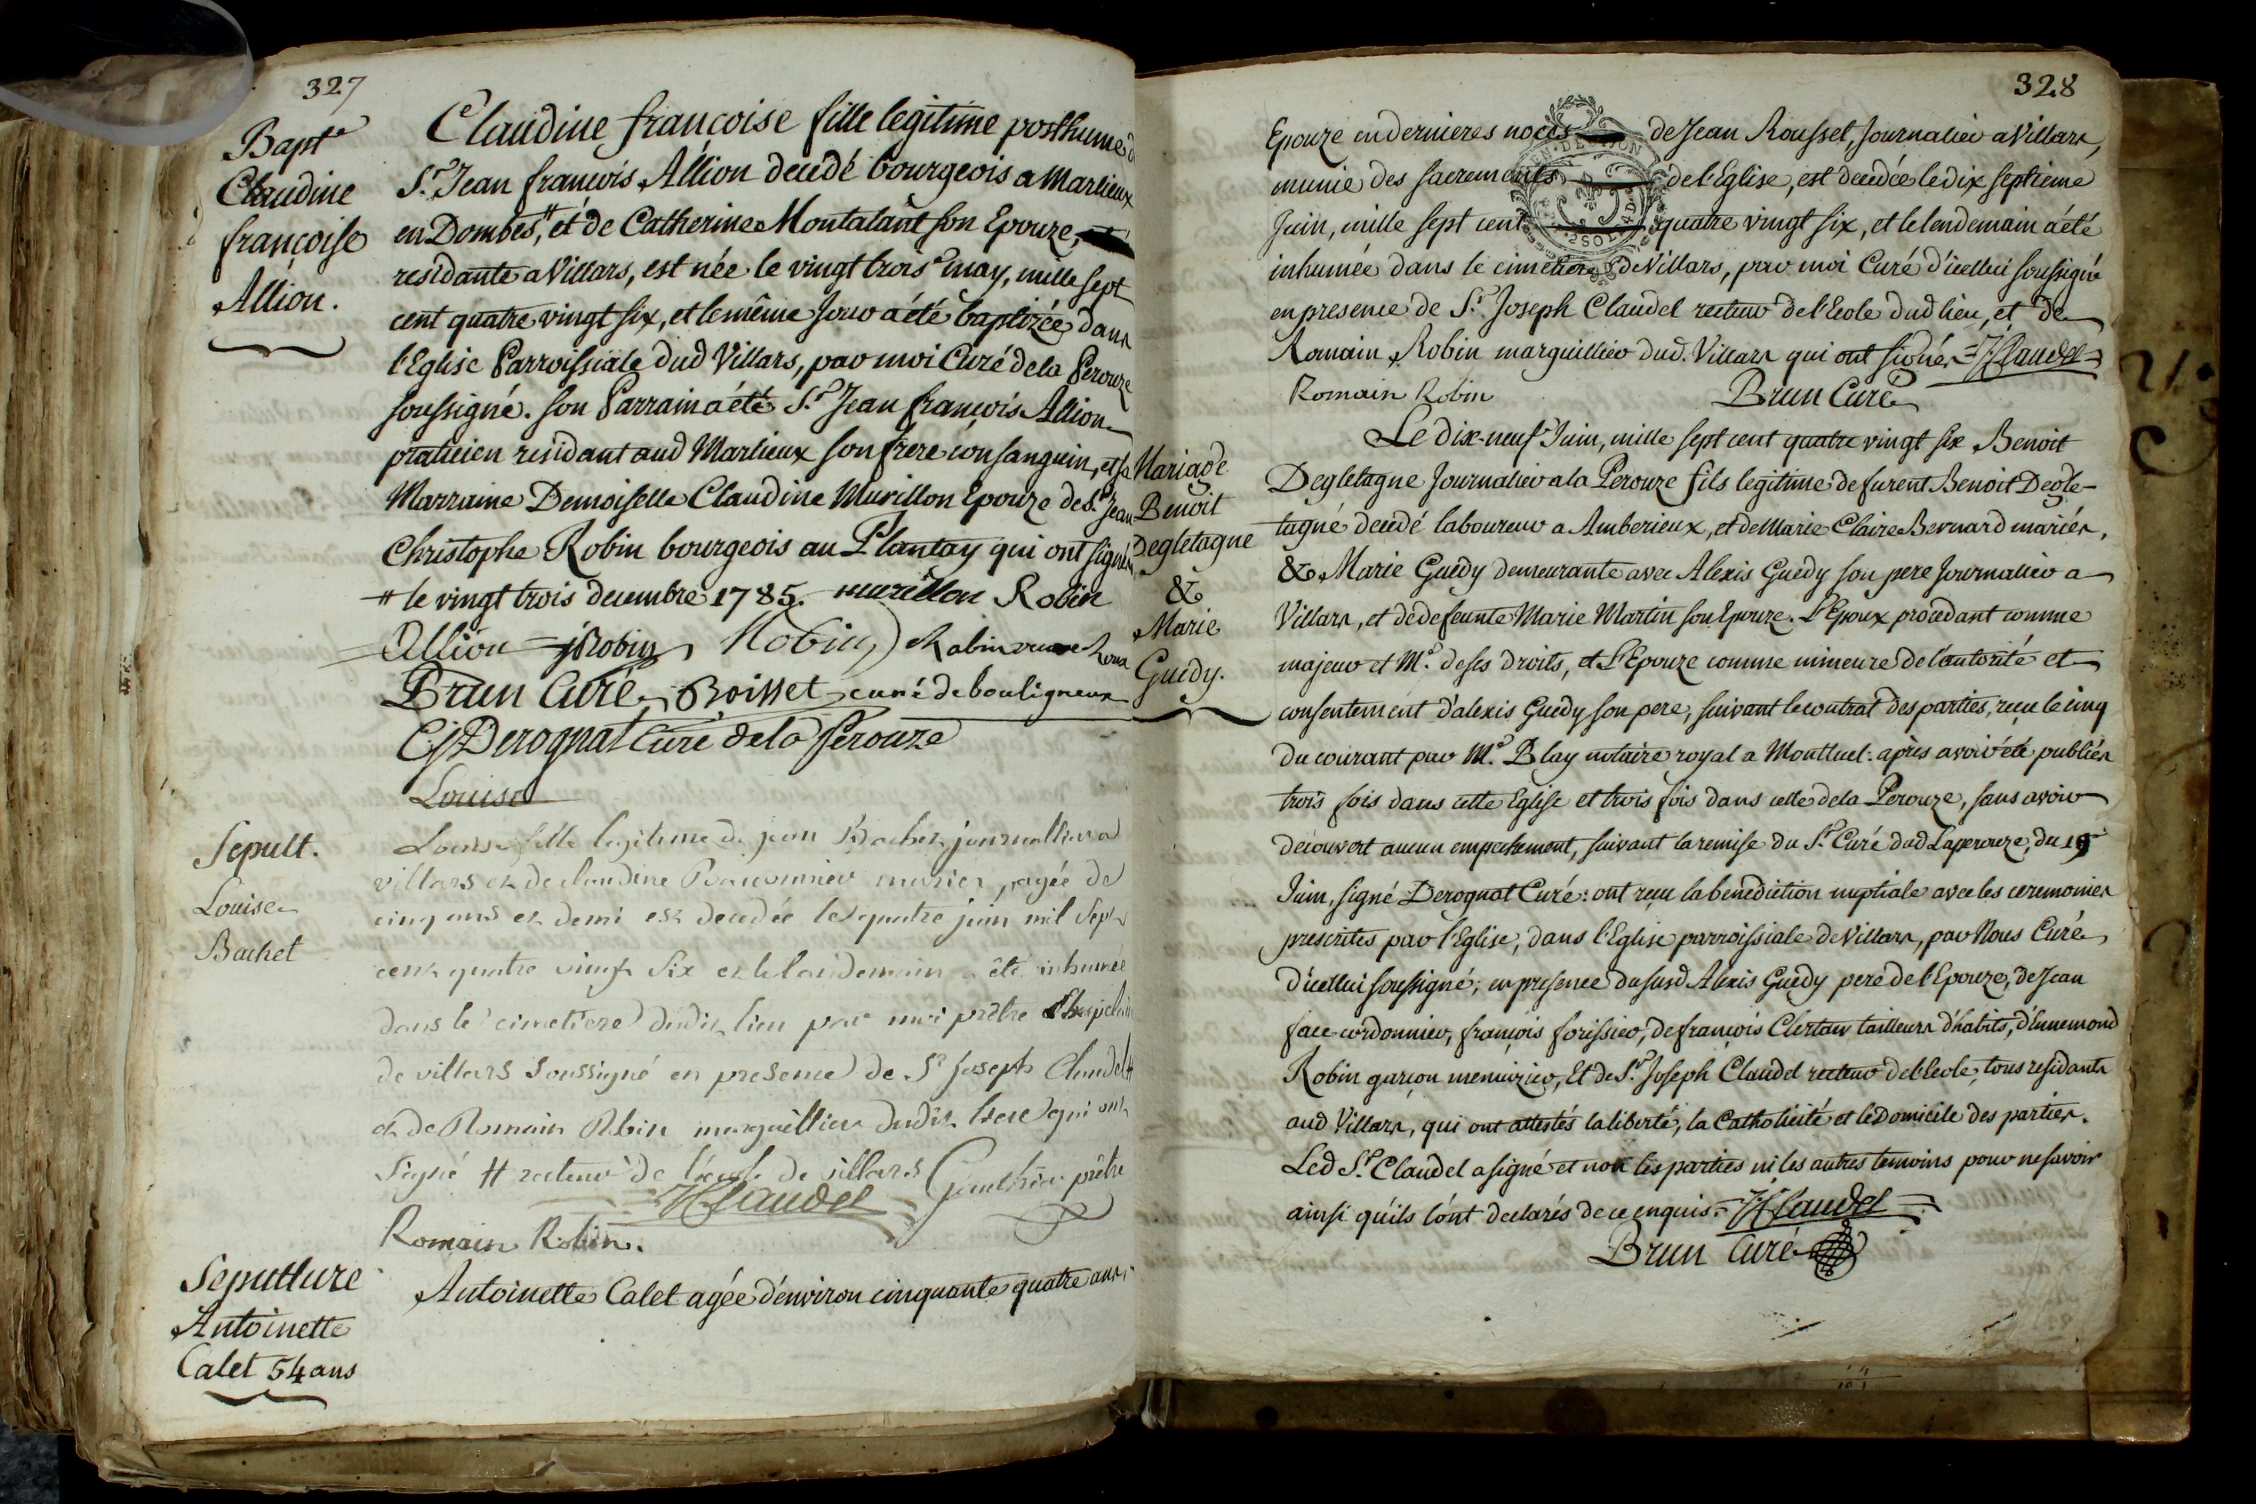 327
Bapt^e
Claudine
françoise
Allion.
Claudine françoise fille legitime posthume
S.^r Jean françois Allion decedé bourgeois a Marlieux
en Dombes,# et de Catherine Montalant son Epouze,
residante a Villars, est née le vingt trois may, mille sept
cent quatre vingt six, et le même jour a été baptizée dans
l'Eglise Parroissiale dud Villars, par moi Curé de la Perouze
soussigné. son Parrain a été S.^r Jean françois Allion
praticien residant aud Marlieux son frere consanguin, et sa
Marraine Demoiselle Claudine Murillon Epouze de S.^r Jean
Christophe Robin bourgeois au Plantay qui ont signés
# le vingt trois decembre 1785. murillon Robin
Allion JRobin Robin Robin
Brun Curé Boisset curé de bouligneux
CJ Derognat curé de la Perouze
Louise
Sepult.
Louise
Bachet
Louise fille legitime de jean Bachet journallier a
villars et de claudine mariés, agée de
cinq ans et demi est decedée le quatre juin mil sept
cent quatre vingt six et le landemain a été inhumée
dans le cimetiere dudit lieu par moi prêtre
de villars soussigné en presence de S^r joseph Claudel #
et de Romain Robin marguillier dudit lieu qui ont
signé # recteur de l'école de villars Gauthier prêtre
JClaudel
Romain Robin.
Sepulture
Antoinette
Calet 54 ans
Antoinette Calet agée d'environ cinquante quatre ans,
328
Epouze en dernieres noces de Jean Rousset, Journalier a Villars,
munie des sacrements de l'Eglise, est decedée le dix septieme
Juin, mille sept cent quatre vingt six, et le lendemain a été
inhumée dans le cimetiere de Villars, par moi Curé d'icellui soussigné
en presence de S.^r Joseph Claudel recteur de l'Ecole dud lieu, et de
Romain Robin marguillier dud. Villars qui ont signés JClaudel
Romain Robin Brun Curé
Mariage
Benoit
Degletagne
&
Marie
Guédy.
Le dix-neuf Juin, mille sept cent quatre vingt six Benoit
Degletagne Journalier a la Perouze fils legitime de furent Benoit Degle-
tagne decedé laboureur a Amberieux, et de Marie Claire Bernard mariés,
& Marie Guédy demeurante avec Alexis Guédy son pere Journalier a
Villars, et de defeunte Marie Martin son Epouze. L'Epoux procedant comme
majeur et M.^e de ses droits, et l'Epouze comme mineure de l'autorité et
consentement d'alexis Guédy son pere, suivant le contrat des parties, reçu le cinq
du courant par M.^e Blay notaire royal a Montluel: après avoir été publiés
trois fois dans cette Eglise et trois fois dans celle de la Perouze, sans avoir
découvert aucun empechement, suivant la remise du S.^r Curé dud Laperouze, du 19
Juin, signé Derognat Curé: ont reçu la benediction nuptiale avec les ceremonies
prescrites par l'Eglise, dans l'Eglise parroissiale de Villars, par Nous Curé
d'icellui soussigné; en presence du susd Alexis Guédy pere de l'Epouze, de Jean
face cordonnier, françois forissier, de françois Clertau tailleurs d'habits, d'Ennemond
Robin garçon menuizier, Et de S.^r Joseph Claudel recteur de l'école, tous residants
aud Villars, qui ont attestés la liberté, la Catholicité et le Domicile des parties.
Led S.^r Claudel a signé et non les parties ni les autres temoins pour ne savoir
ainsi qu'ils l'ont declarés de ce enquis. JClaudel
Brun Curé